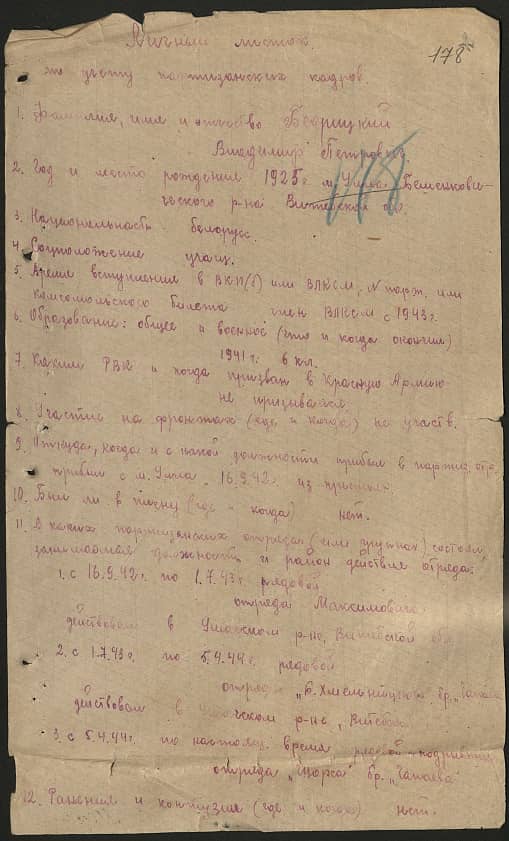 Личный листок
178
по учету партизанских кадров.
1. Фамилия, имя и отчество
Владимир Петрович
2. Год и место рождения 1925 г. м. Улла Бешенкови-
ческого р-на Витебской об.
3. Национальность белорусс.
4. Соцположение учащ.
5. Время вступления в ВКП(б) или ВЛКСМ, N парт. или
комсомольского билета член ВЛКСМ с 1943 г.
6. Образование: общее и военное (что и когда окончил)
1941 г. 6 кл.
7. Каким РВК и когда призван в Красную Армию
не призывался
8. Участие на фронтах (где и когда) не участв.
9. Откуда, когда и с какой должности прибыл в партиз. отр.
прибыл с м. Улла. 16.9.42 г. из
10. Был ли в плену (где и когда) нет.
11. В каких партизанских отрядах (или группах) состоял,
занимаемая должность и район действия отряда:
1. с 16.9.42 г. по 1.7.43 г. рядовой
отряда Максимова
действовал в Ушачском р-не, Витебской обл.
2. с 1.7.43 г. по 5.4.44 г. рядовой
отряда „Б. Хмельницкого" бр. „Чапаева
действовал в Ушачском р-не, Витебск
3. с 5.4.44 г. по настоящ. время рядовой - подрывник
отряда „Щорса" бр. „Чапаева"
12. Ранения и контузия (где и когда) нет.